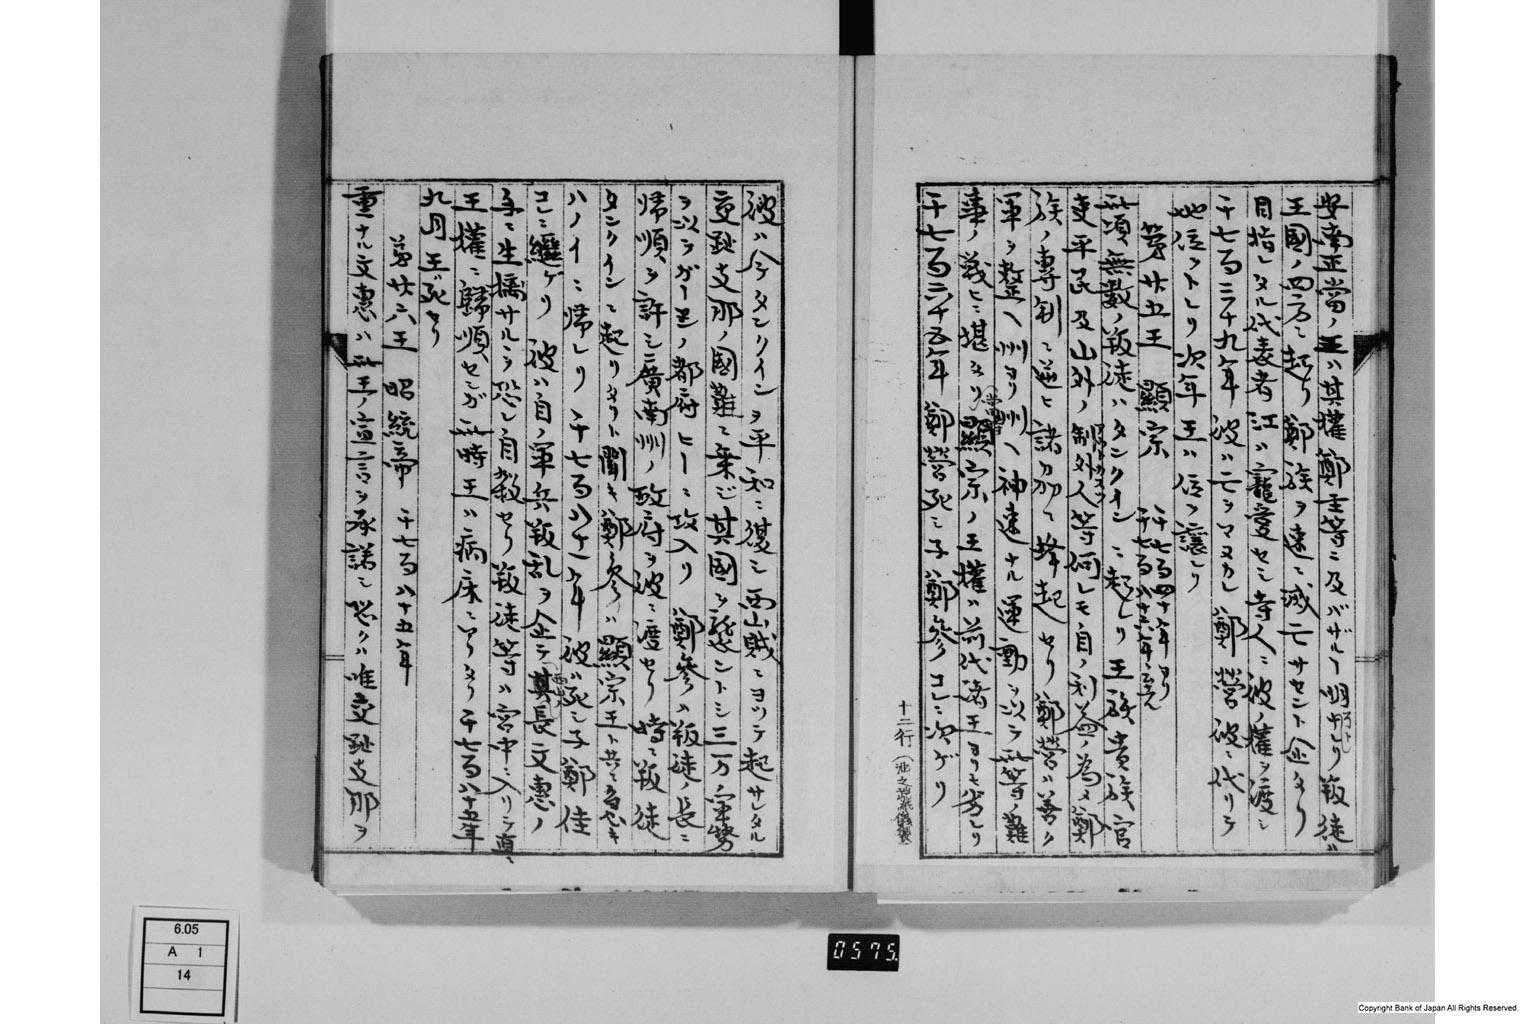 安南正當ノ王ハ其權鄭王等ニ及バザルー明ナレリ叛徒ハ
王國ノ四方ニ起リ鄭族ヲ速ニ滅亡サセント企タリ
目指シタル代表者江ハ寵愛セシ寺人ニ彼ノ權ヲ渡シ
千七百三十九年彼ハ亡ヲマヌカレ鄭營彼ニ代リテ
其位ヲトレリ次年王ハ位ヲ讓レリ
第廿五王 顯宗 千七百四十年ヨリ
千七百八十六年
此頃無数ノ叛徒ハタンクインニ起レリ王族貴族官
吏平民及山外ノ制外人等何レモ自ノ利益ノ為メ鄭
族ノ專制ニ逆ヒ諸州ニ蜂起セリ鄭營ハ善ク
軍ヲ整ヘ州ヨリ州ヘ神速ナル運動ヲ以テ此等ノ難
事ノ義ヒニ堪タリ顯宗ノ王權ハ前代諸王ヨリモ劣レリ
千七百六十五年鄭營死シ子鄭參コレニ次ゲリ
十二行
彼ハ今タンクインヲ平和ニ復シ西山賊ニヨツテ起サレタル
交趾支那ノ國難ニ乗ジ其國ヲ襲ントシ三万ノ軍勢
ヲ以テガー且ノ都府ヒーニ攻入リ鄭參ハ叛徒ノ長ニ
帰順ヲ許シ廣南州ノ政府ヲ彼ニ渡セリ時ニ叛徒
タンクインニ起リタリト聞キ鄭參ハ顯宗王ト共ニ急キ
ハノイニ帰レリ千七百八十一年彼ハ死シ子鄭佳
コレニ繼ゲリ彼ハ自ノ軍兵叛乱ヲ企テ其長文惠ノ
手ニ生擒サルヽヲ恐レ自殺セリ叛徒等ハ宮中ニ入リテ直ニ
王權ニ歸順セシガ此時王ハ病床ニアリタリ千七百八十五年
九月王ハ死セリ
第廿六王 昭統帝 千七百八十五年
重ナル文惠ハ此王ノ宣言ヲ承諾シ恐クハ唯交趾支那ヲ
6.05
A 1
14
0575.
Copyright Bank of Japan All Rights Reserved.